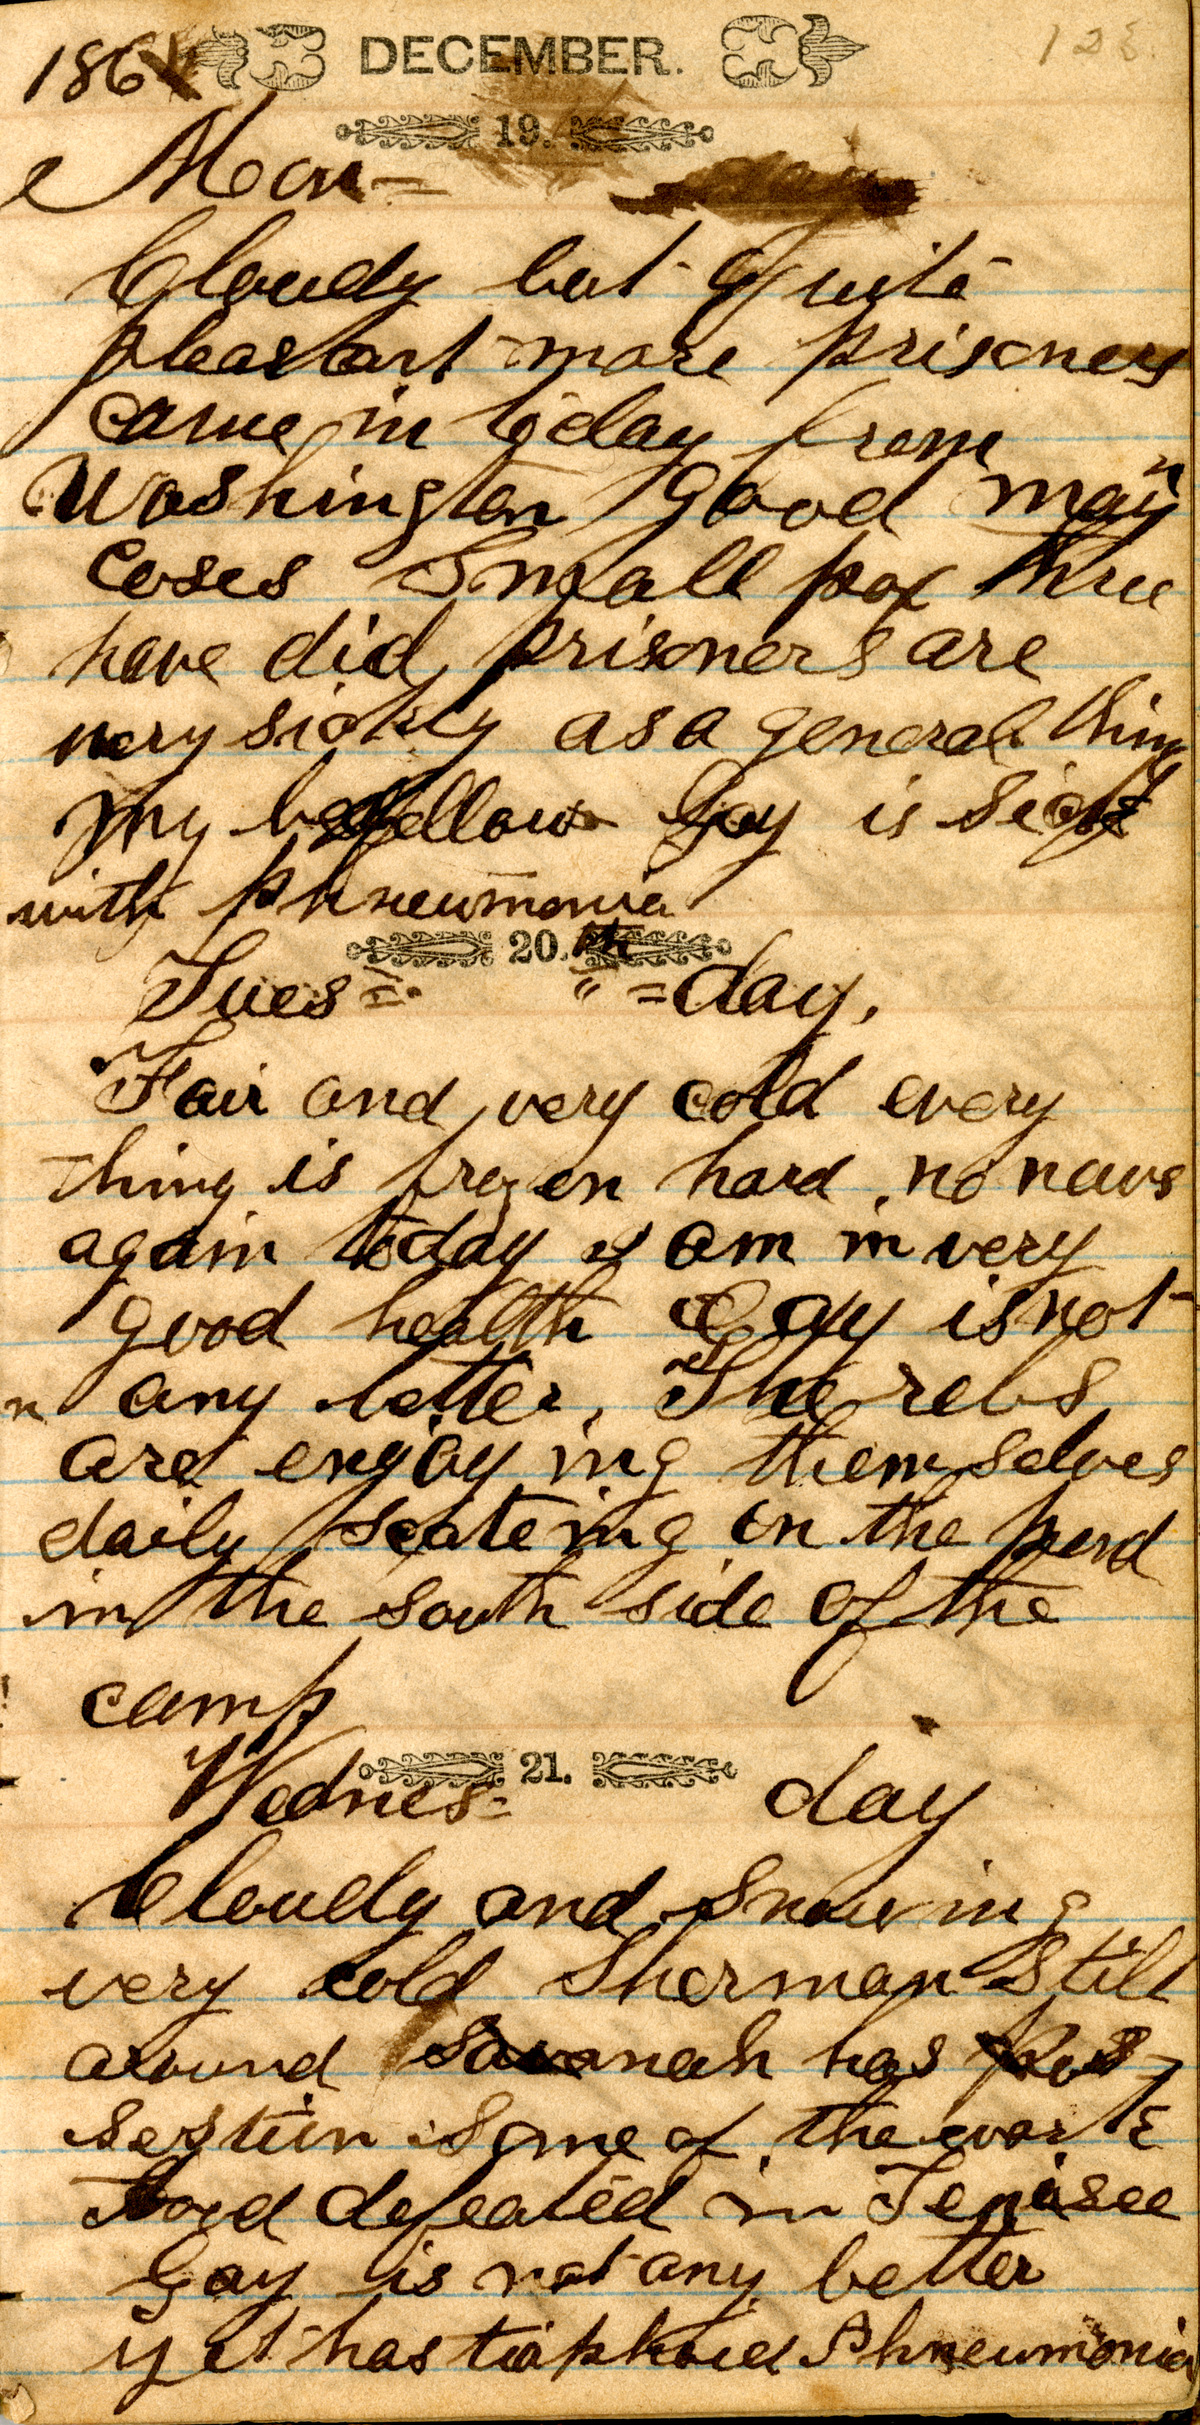 1864 DECEMBER. 128.
19.
Mon=
Cloudy but quite
pleasant more prisoners
came in today from
Washington good many
coses Small pox three
have did, prisoners are
very sickly as a general thing
my bedfellow Gay is sick
with phneumonia
20.th
Tues= " =day,
Fair and very cold every
thing is frozen hard no news
again today I am in very
good health Gay is not
any better, The rebs
are enjoying themselves
daily scateing on the pond
in the south side of the
camp
21.
Wednes= day
Cloudy and Snowing
very cold Sherman Still
around Savanah has Pos=
sestion Some of the works
Hood defeated in Tenisee
Gay is not any better
yet has tiaphoid Phneumonia